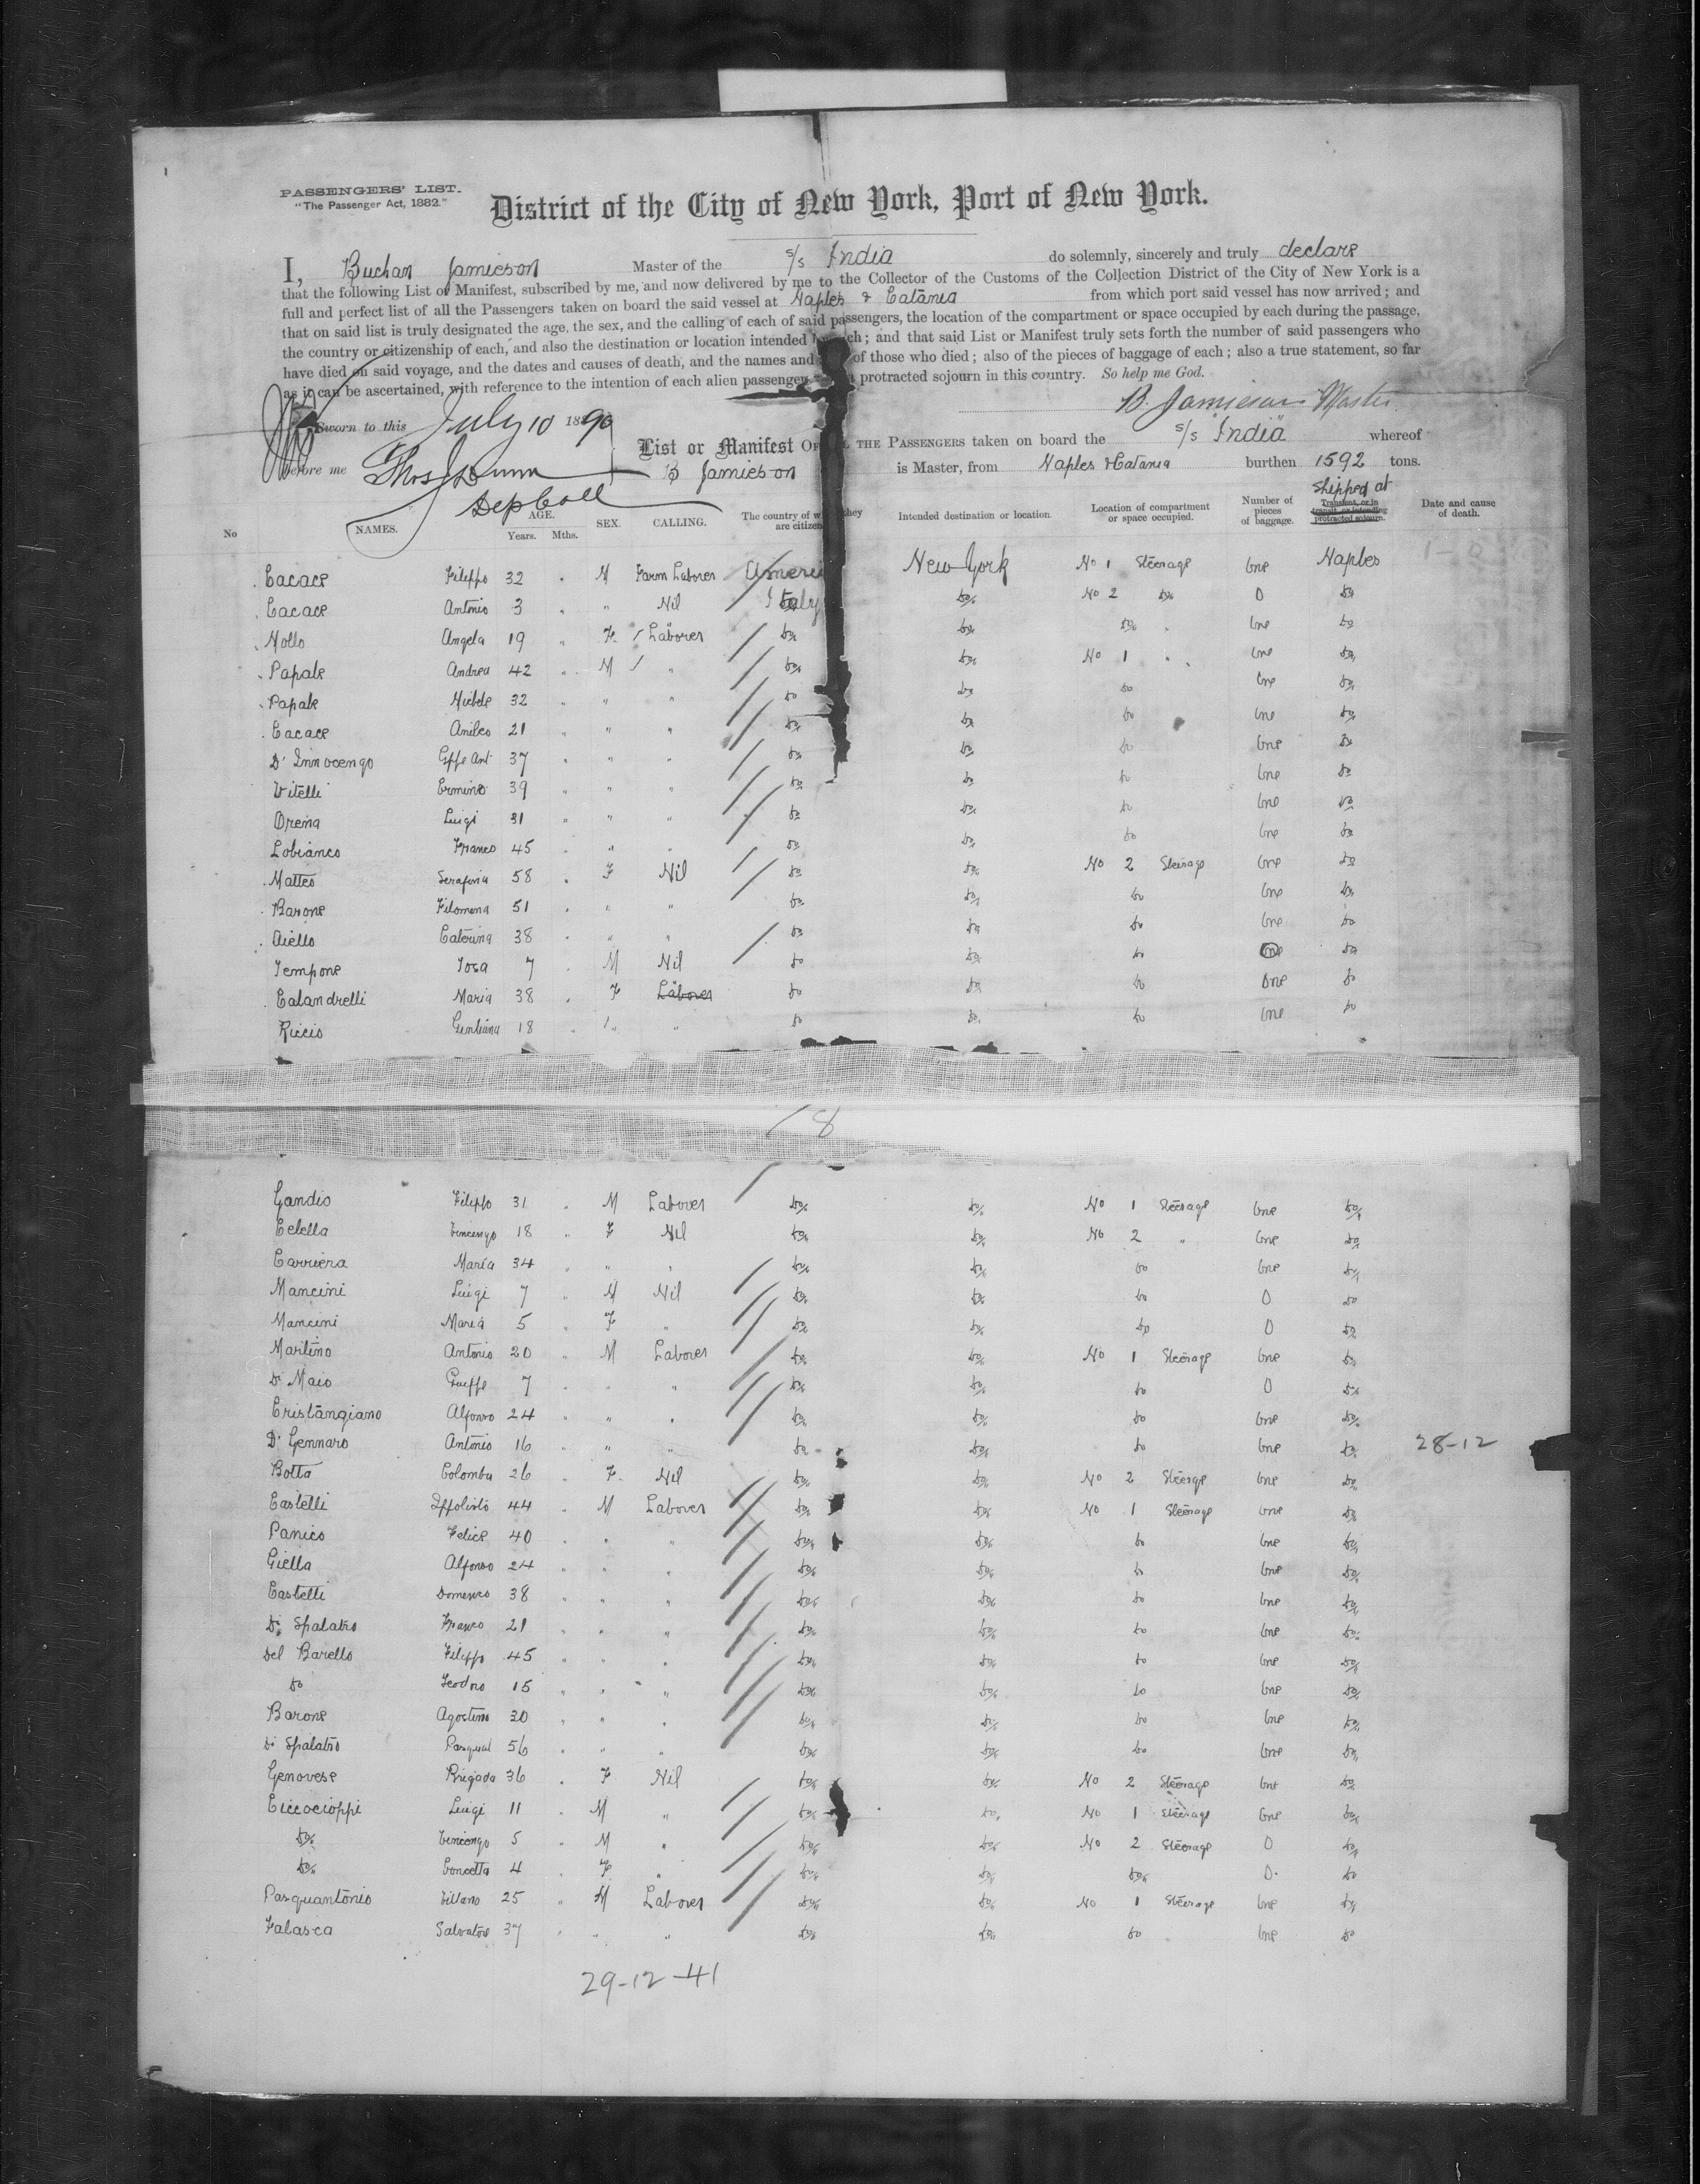 PASSENGERS' LIST.
"The Passenger Act, 1882."
District of the City of New York, Port of New York.
I, Buchan Jamieson Master of the s/s India do solemnly, sincerely and truly declare
that the following List or Manifest, subscribed by me, and now delivered by me to the Collector of the Customs of the Collection District of the City of New York is a
full and perfect list of all the Passengers taken on board the said vessel at Naples & Catania from which port said vessel has now arrived; and
that on said list is truly designated the age, the sex, and the calling of each of said passengers, the location of the compartment or space occupied by each during the passage,
the country or citizenship of each, and also the destination or location intended by each; and that said List or Manifest truly sets forth the number of said passengers who
have died on said voyage, and the dates and causes of death, and the names and of those who died; also of the pieces of baggage of each; also a true statement, so far
as it can be ascertained, with reference to the intention of each alien passenger protracted sojourn in this country. So help me God.
B. Jamieson Master
Sworn to this July 10 1890
before me Thos J Dunn
Dep Coll
List or Manifest OF ALL THE PASSENGERS taken on board the s/s India whereof
B Jamieson is Master, from Naples & Catania burthen 1592 tons.
No NAMES. AGE. Years. Mths. SEX. CALLING. The country of which they are citizens Intended destination or location. Location of compartment or space occupied. Number of pieces of baggage. Shipped at Transient, or in transit, or intending protracted sojourn. Date and cause of death.
Cacace Filippo 32 " M Farm Laborer Americ New York No 1 Steerage One Naples
Cacace Antonio 3 " " Nil Italy do No 2 do 0 do
Mollo Angela 19 " F Laborer do do do " One do
Papale Andrea 42 " M " do do No 1 " One do
Papale Michele 32 " " " do do do One do
Cacace Anileo 21 " " " do do do One do
D' Innocenzo Gppe Ant 37 " " " do do do One do
Vitelli Ermino 39 " " " do do do One do
Orena Luigi 31 " " " do do do One do
Lobianco Franco 45 " " " do do do One do
Matteo Serafina 58 " F Nil do do No 2 Steerage One do
Barone Filomena 51 " " " do do do One do
Aiello Caterina 38 " " " do do do One do
Tempone Rosa 7 " M Nil do do do One do
Calandrelli Maria 38 " F Laborer do do do One do
Riccio Giuliana 18 " " " do do do One do
18
Gandio Filippo 31 " M Laborer do do No 1 Steerage One do
Celella Vincenzo 18 " F Nil do do No 2 " One do
Carriera Maria 34 " " " do do do One do
Mancini Luigi 7 " M Nil do do do 0 do
Mancini Maria 5 " F " do do do 0 do
Martino Antonio 20 " M Laborer do do No 1 Steerage One do
Di Maio Gueppe 7 " " " do do do 0 do
Cristangiano Alfonso 24 " " " do do do One do
Di Gennaro Antonio 16 " " " do do do One do 28-12
Botta Colomba 26 " F Nil do do No 2 Steerge One do
Castelli Ippolisto 44 " M Laborer do do No 1 Steerage One do
Panico Felice 40 " " " do do do One do
Giella Alfonso 24 " " " do do do One do
Castelli Domenico 38 " " " do do do One do
Di Spalatro Franco 21 " " " do do do One do
Del Barello Filippo 45 " " " do do do One do
do Teodoro 15 " " " do do do One do
Barone Agostino 30 " " " do do do One do
Di Spalatro Pasqual 56 " " " do do do One do
Genovese Brigada 36 " F Nil do do No 2 Steerage One do
Ciccocioppi Luigi 11 " M " do do No 1 Steerage One do
do Vincenzo 5 " M " do do No 2 Steerage 0 do
do Concetta 4 " F " do do do 0 do
Pasquantonio Villano 25 " M Laborer do do No 1 Steerage One do
Falasca Salvatore 37 " " " do do do One do
29-12-41